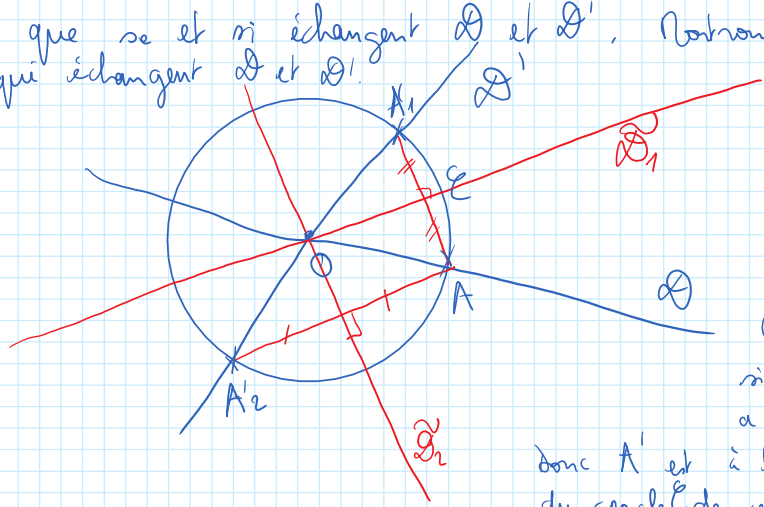 que se et si échangent D et D'. Montron
qui échangent D et D'.
D'
A'1
D̃1
C
O
A
D
A'2
D̃2
si
a
donc A' est à
du cercle C de